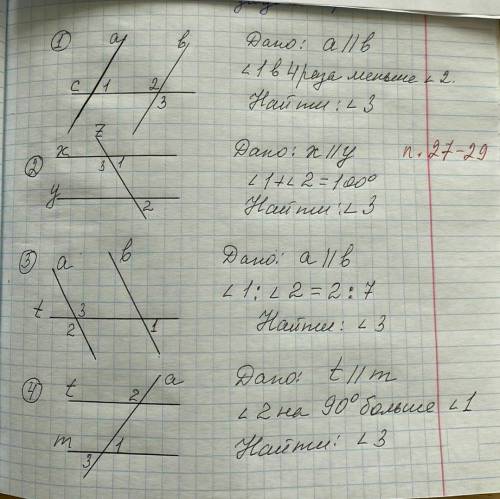 1 a b
c 1 2
3
Дано: a∥b
∠1 в 4 раза меньше ∠2.
Найти: ∠3
2 z
x 3 1
y 2
Дано: x∥y п. 27-29
∠1+∠2=100°
Найти: ∠3
3 a b
t 3
2 1
Дано: a∥b
∠1:∠2=2:7
Найти: ∠3
4 t 2 a
m 1
3
Дано: t∥m
∠2 на 90° больше ∠1
Найти: ∠3